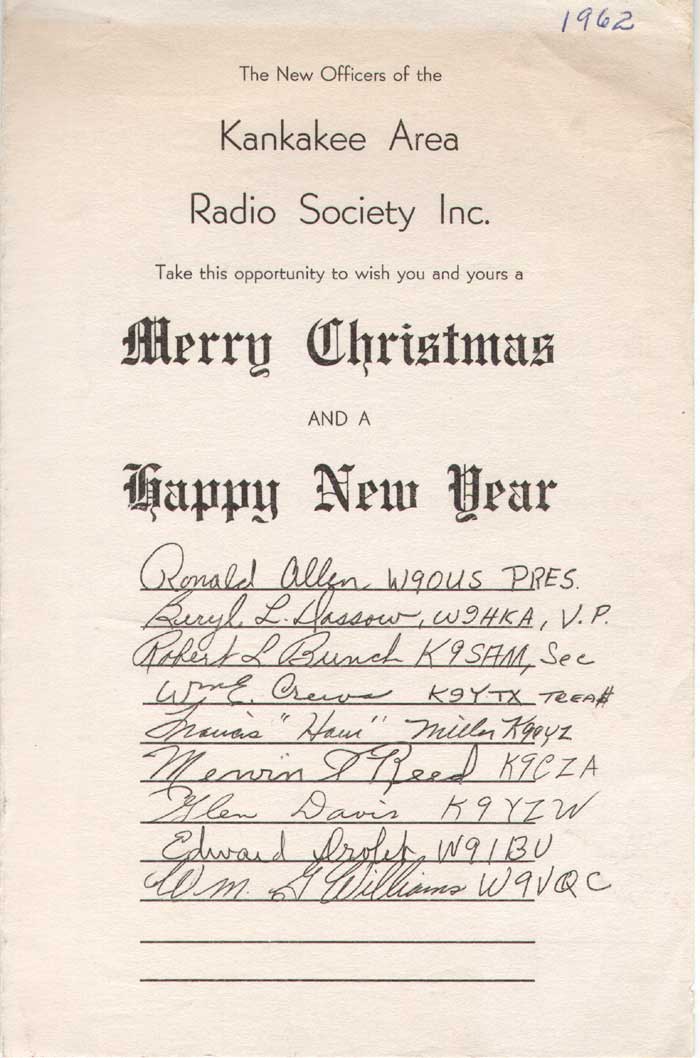 1962
The New Officers of the
Kankakee Area
Radio Society Inc.
Take this opportunity to wish you and yours a
Merry Christmas
AND A
Happy New Year
Ronald Allen W9OUS PRES.
Beryl L. Dassow, W9HKA, V.P.
Robert L Bunch K9SAM, Sec
Wm E. Crews K9YTX TREA$
Francis "Ham" Miller
Merwin Reed K9CZA
Glen Davis K9YZW
Edward Drolet W9IBU
Wm. G Williams W9VQC